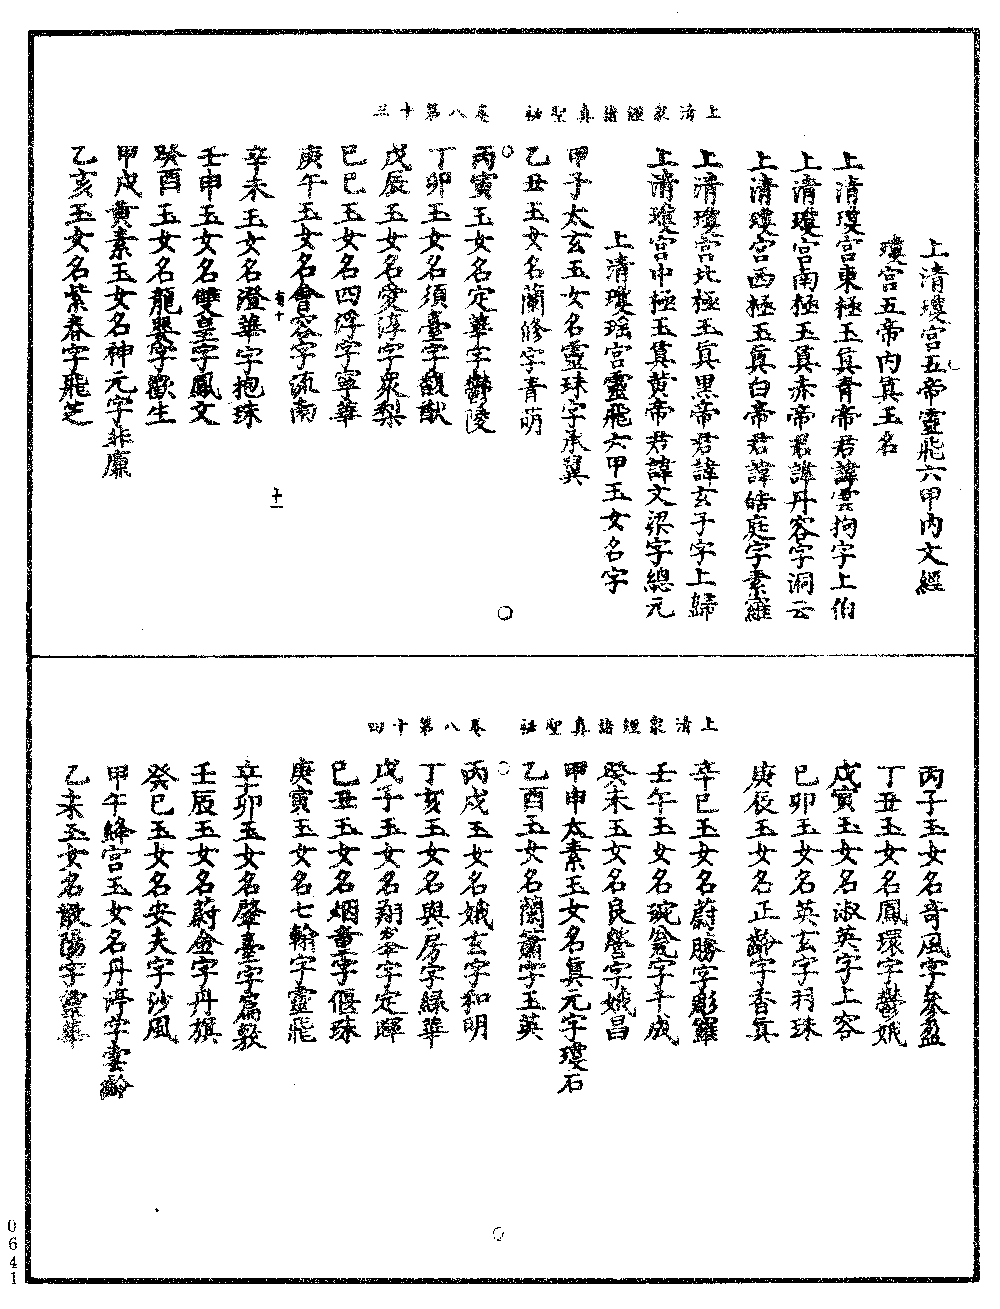 上清眾經諸真聖祕　卷八第十三
上清瓊宮五帝靈飛六甲内文經
瓊宮五帝内真玉名
上清瓊宮東極玉真青帝君諱雲拘字上伯
上清瓊宮南極玉真赤帝君諱丹容字洞云
上清瓊宮西極玉真白帝君諱皓庭字素羅
上清瓊宮北極玉真黑帝君諱玄子字上歸
上清瓊宮中極玉真黃帝君諱文梁字總元
上清瓊瑶宮靈飛六甲玉女名字
甲子太玄玉女名靈珠字承翼
乙丑玉女名蘭修字青萌
丙寅玉女名定華字鬱陵
丁卯玉女名須臺字馥猷
戊辰玉女名愛淳字眾梨
己巳玉女名四浮字寧華
庚午玉女名會容字流南
辛未玉女名澄華字抱珠
壬申玉女名雙皇字鳳文
癸酉玉女名龍嬰字歡生
甲戌黃素玉女名神元字非廉
乙亥玉女名紫春字飛芝
十一
上清眾經諸真聖祕　卷八第十四
丙子玉女名奇風字參盈
丁丑玉女名鳳環字鬱娥
戊寅玉女名淑英字上容
己卯玉女名英玄字羽珠
庚辰玉女名正齡字香真
辛巳玉女名蔚勝字彫羅
壬午玉女名琬瓫字千成
癸未玉女名良營字娥昌
甲申太素玉女名真元字瓊石
乙酉玉女名蘭簫字玉英
丙戌玉女名娥玄字和明
丁亥玉女名與房字綠華
戊子玉女名翔峯字定暉
己丑玉女名烟童字偃珠
庚寅玉女名七翰字靈飛
辛卯玉女名肇臺字篇敷
壬辰玉女名蔚金字丹旗
癸巳玉女名安夫字沙風
甲午絳宮玉女名丹淳字雲齡
乙未玉女名散陽字靈華
0641